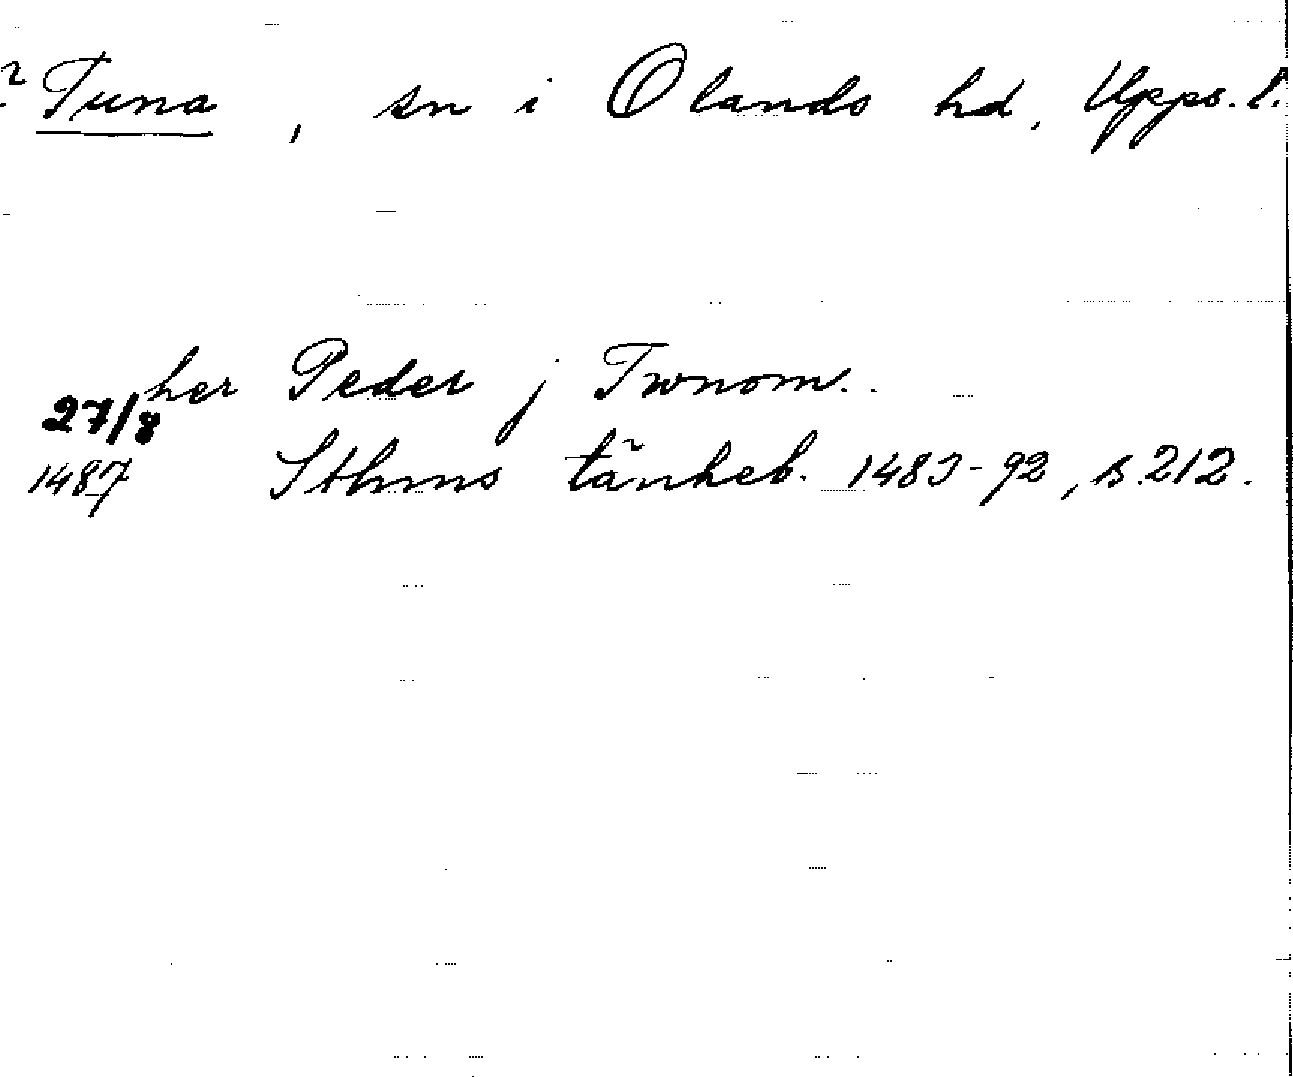 ? Tuna, sn i Olands hd, Upps. l.
her Peder j Twnom.
27/8
1487 Sthms tänkeb. 1483-92, s. 212.